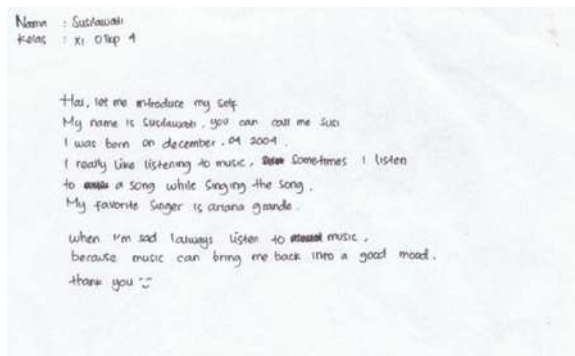 Nama : Susilawati
Kelas : XI OTKP 4
Hai, let me introduce my self
My name is Susilawati, you can call me Susi
I was born on december. 04 2004.
I really like listening to music, Sometimes I listen
to a song while singing the song.
My favorite Singer is ariana grande.
when I'm sad I always listen to music,
because music can bring me back into a good mood.
thank you